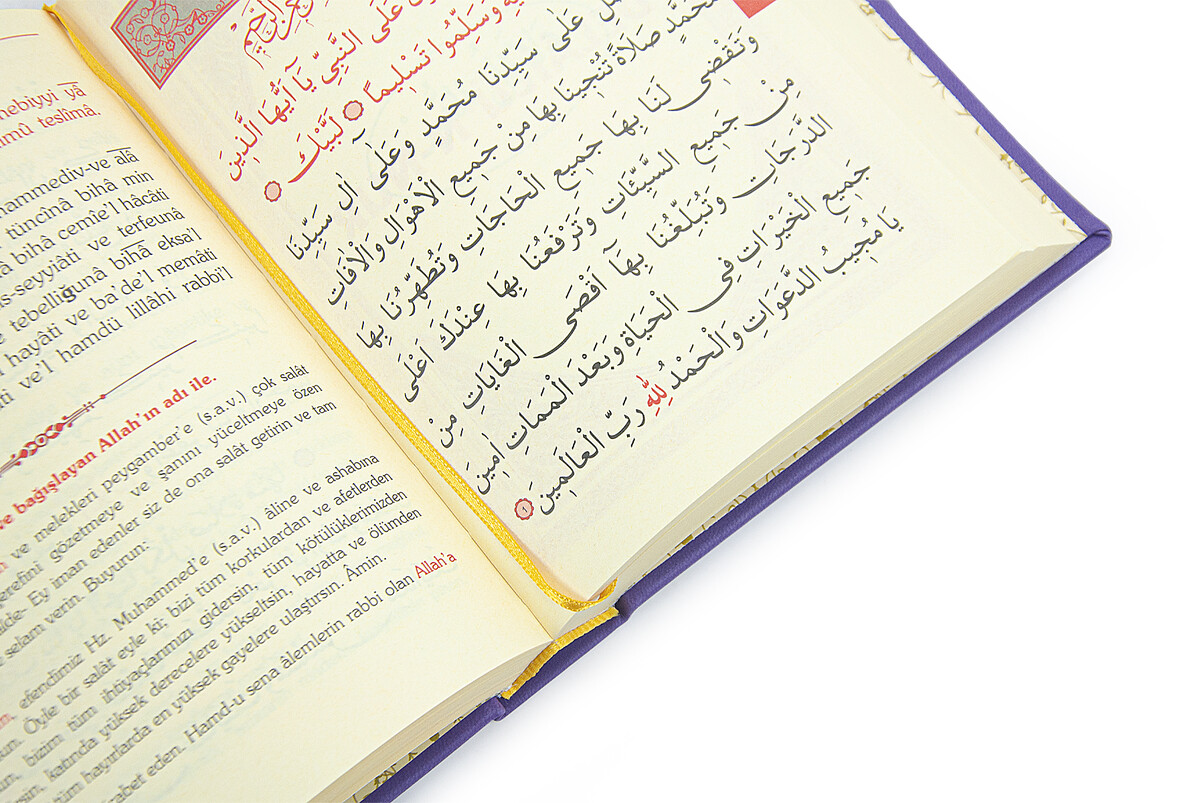 nebiyyi yâ
teslîmâ.
ve alâ
tüncînâ bihâ min
bihâ cemîe'l hâcâti
seyyiâti ve terfeunâ
tebelliğunâ bihâ eksa'l
hayâti ve ba'de'l memâti
ve'l hamdü lillâhi rabbi'l
ve bağışlayan Allah'ın adı ile.
ve melekleri peygamber'e (s.a.v.) çok salât
şerefini gözetmeye ve şanını yüceltmeye özen
Ey iman edenler siz de ona salât getirin ve tam
selam verin. Buyurun:
efendimiz Hz. Muhammed'e (s.a.v.) âline ve ashabına
Öyle bir salât eyle ki; bizi tüm korkulardan ve afetlerden
bizim tüm ihtiyaçlarımızı gidersin, tüm kötülüklerimizden
katında yüksek derecelere yükseltsin, hayatta ve ölümden
tüm hayırlarda en yüksek gayelere ulaştırsın. Âmin.
eden. Hamd-u sena âlemlerin rabbi olan Allah'a
عَلَى النَّبِيِّ يَآ اَيُّهَا الَّذِينَ
وَسَلِّمُوا تَسْلِيمًا لَبَّيْكَ
عَلٰى سَيِّدِنَا مُحَمَّدٍ وَعَلٰٓى اٰلِ سَيِّدِنَا
صَلَاةً تُنْجِينَا بِهَا مِنْ جَمِيعِ الْاَهْوَالِ وَالْاٰفَاتِ
وَتَقْضِى لَنَا بِهَا جَمِيعَ الْحَاجَاتِ وَتُطَهِّرُنَا بِهَا
مِنْ جَمِيعِ السَّيِّئَاتِ وَتَرْفَعُنَا بِهَا عِنْدَكَ اَعْلَى
الدَّرَجَاتِ وَتُبَلِّغُنَا بِهَآ اَقْصَى الْغَايَاتِ مِنْ
جَمِيعِ الْخَيْرَاتِ فِى الْحَيَاةِ وَبَعْدَ الْمَمَاتِ اٰمِينَ
يَا مُجِيبَ الدَّعَوَاتِ وَالْحَمْدُ لِلّٰهِ رَبِّ الْعَالَمِينَ ١